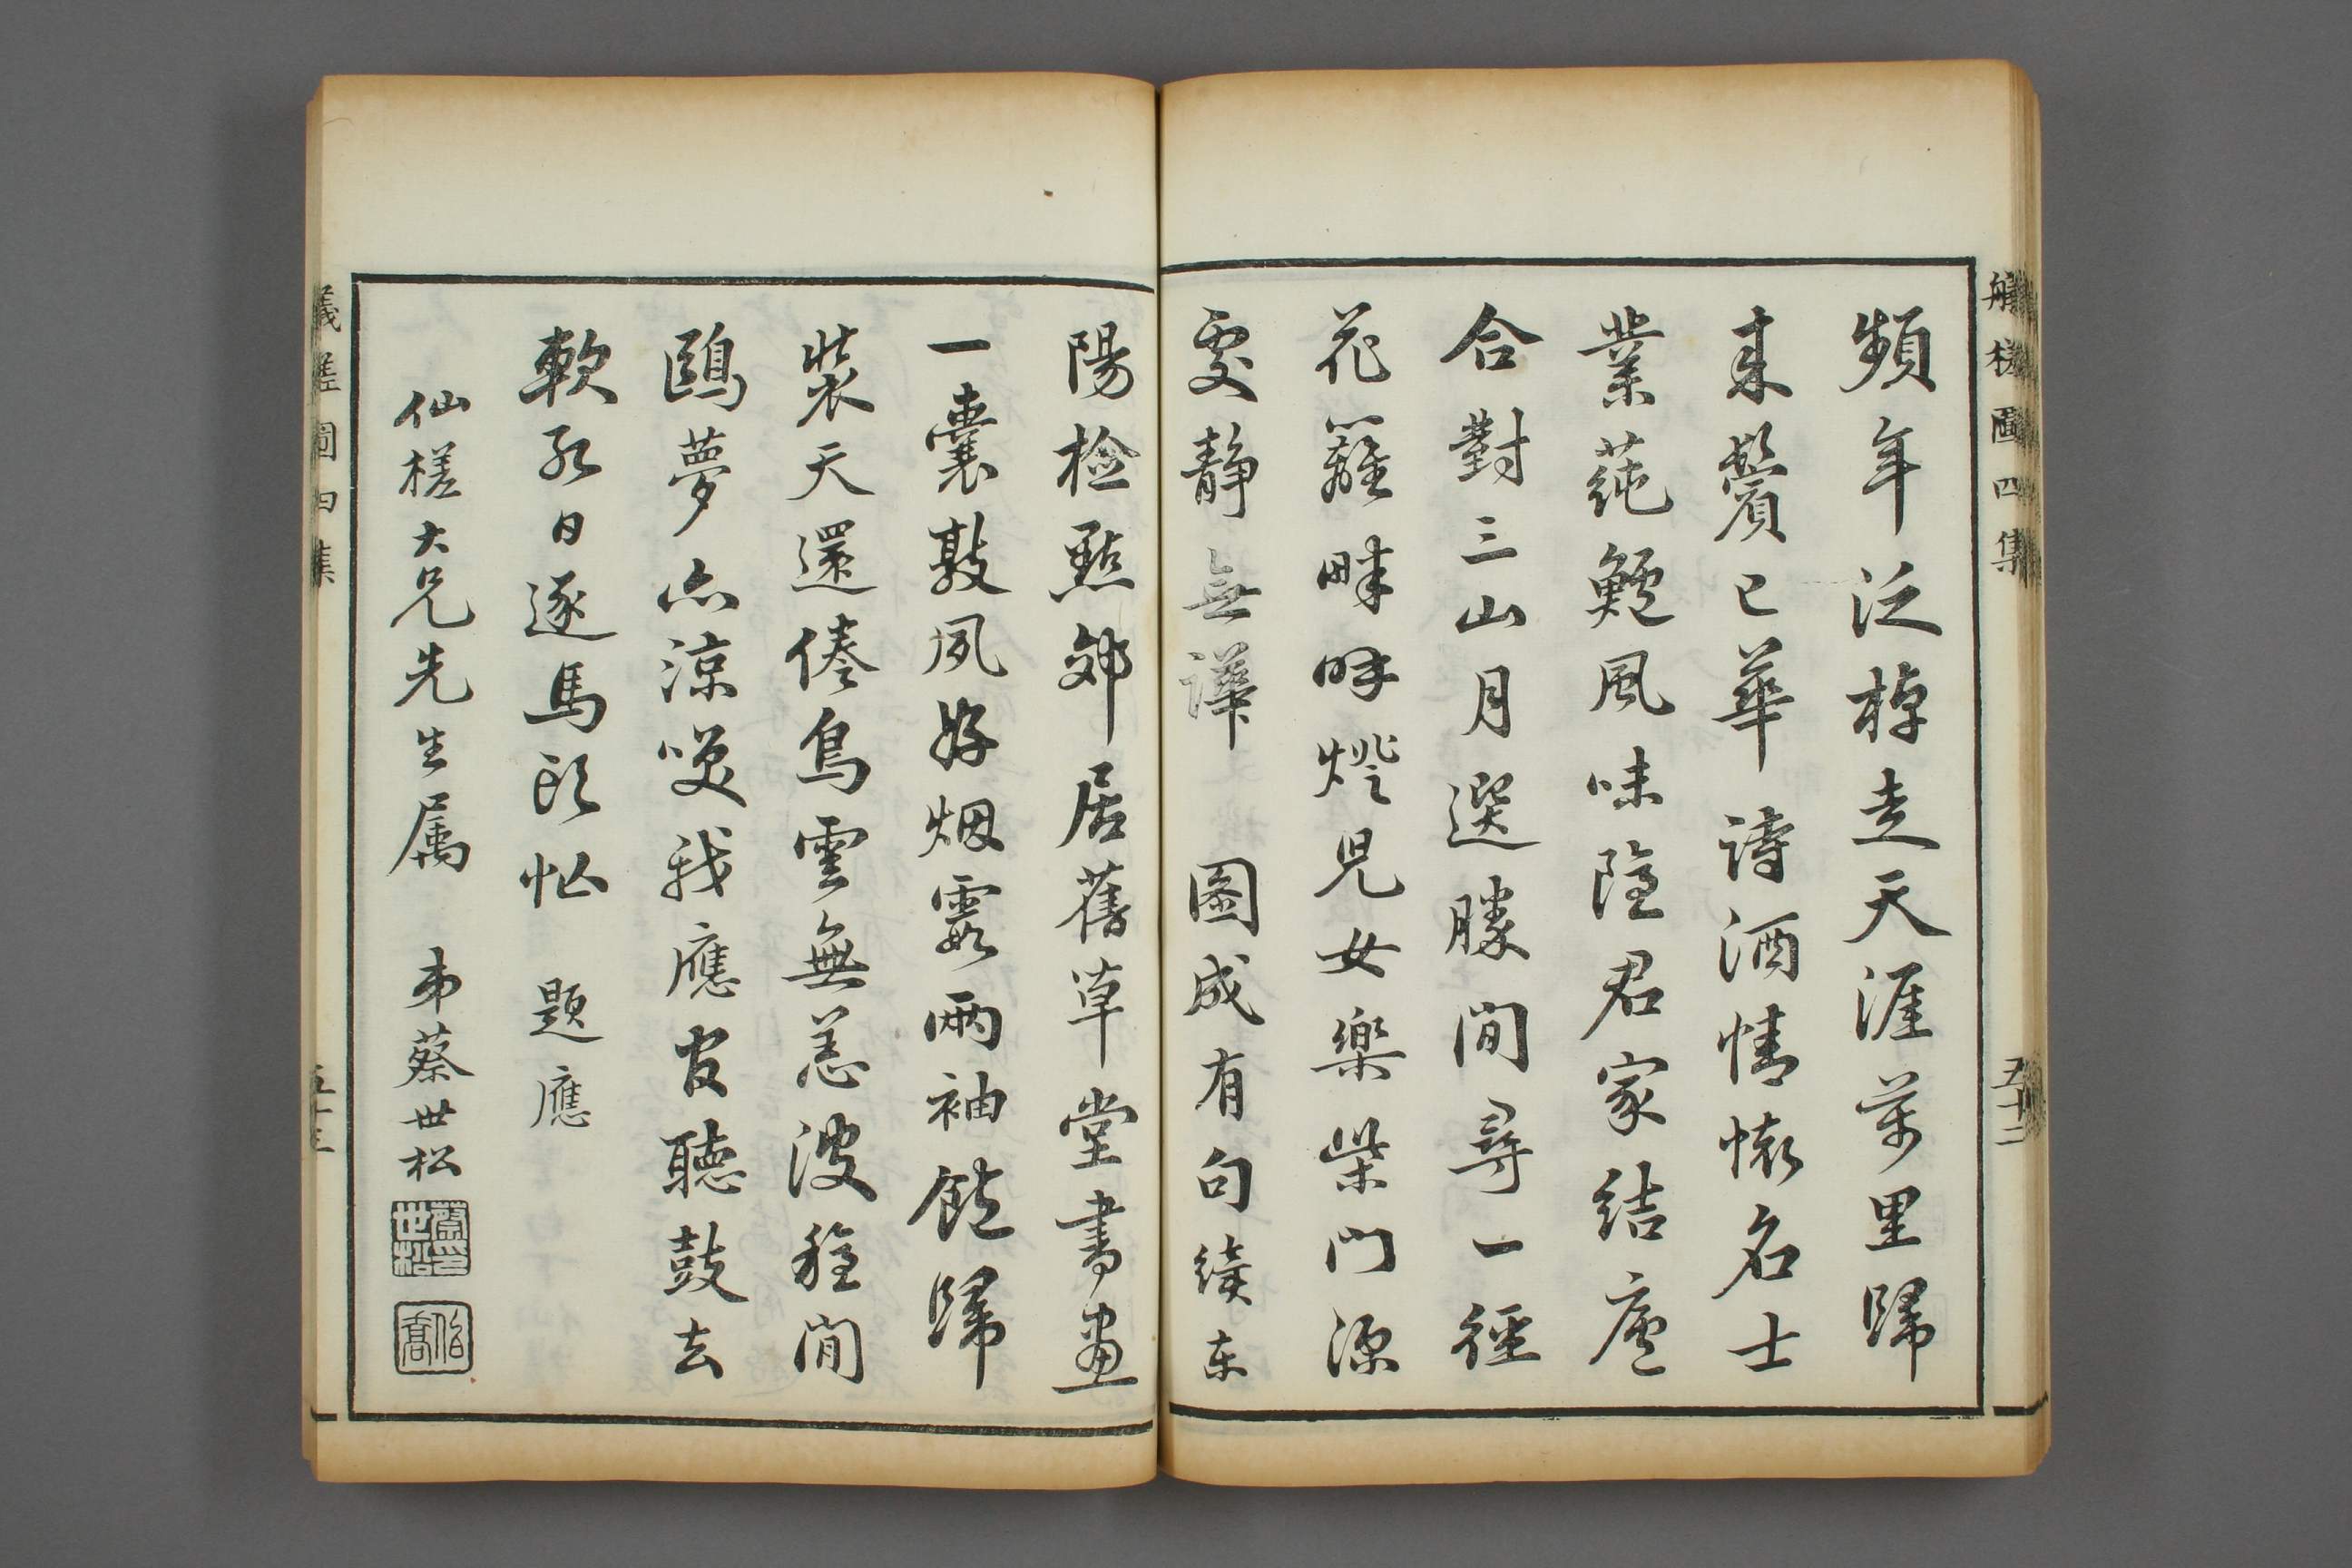 頻年泛棹走天涯萬里歸
來鬢已華 詩酒情懷名士
業蒓鱸風味隱君家結廬
合對三山月選勝閒尋一徑
花籬畔呼燈兒女樂柴門深
處靜無譁 圖成有句續東
陽檢點郊居舊草堂書畫
一囊敦夙好烟霞兩袖飽歸
裝天還倦鳥雲無恙波穩閒
鷗夢亦涼笑我應官聽鼓去
軟紅日逐馬頭忙 題應
仙槎大兄先生屬 弟蔡世松
蔡世松印
伯喬
艤槎圖四集
五十二
艤槎圖四集
五十三